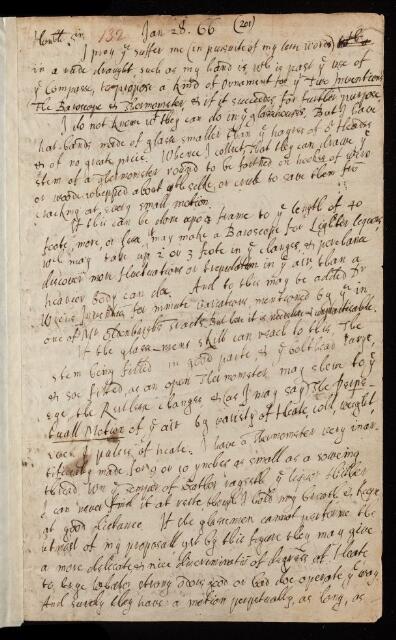 Honble Sir 132 Jan 28. 66 (201)
I pray yᵉ suffer me (in pursuite of my late words)
in a rude draught, such as my hand is, wh is past yᵉ use of
yᵉ Compasse, to propose a kind of ornament for yᵉ Two Inventions
The Baroscope & Thermometer & if it succeeds for further purpose.
I do not know wt they can do in yᵉ glassehouses. But I have
hat-bands made of glasse smaller than yᵉ hayres of oʳ Heades
& of no greate price. Whence I collect that they can drawe yᵉ
stem of a Thermometer round to be fastned on hookes of wire
or wood whipped about with silke or cruel to save them fro
cracking at every small motion.
If this can be done upon a frame to yᵉ length of 40
foote, more, or fewer, may make a Baroscope for Lighter liquors,
wch may take up 2 or 3 foote in yᵉ changes, & perchance
discover more fluctuations or trepidation in yᵉ air, than a
heavier body can doe. And to this may be added Dr
Wrens Invention for minute variations mentioned by yᵉ in
one of Mr Oldenburghs tracts. But
If the glasse-mens skill can reach to this, The
stem being filled in good parte, & yᵉ bolthead large,
& soe fitted as an open Thermometer may shew to yᵉ
eye the Restless changes & (as I may say) The perpe-
tuall Motion of yᵉ air by variety of Heate, cold, weight
& pulses of heate. I have a Thermometer very inar-
tificially made, for 9 or 10 ynches as small as a sowing
thrid. When yᵉ temper of Wather rayseth yᵉ liquor thither
I can never find it at reste, though I hold my breath & keepe
at good distance. If the glassemen cannot performe the
utmost of my proposall, yet by this figure they may give
a more delicate & nice discrimination of degrees of Heate
to large Weather
And surely they have a motion perpetually, as long, as